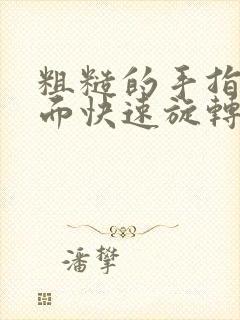 粗糙的手指
而快速旋轉
潘擎